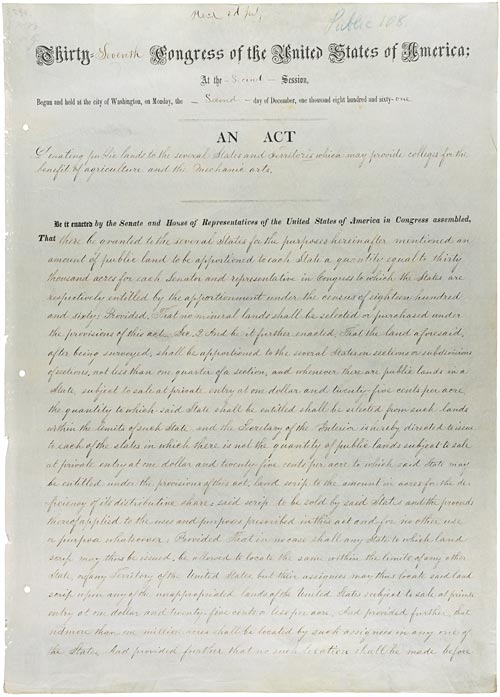 Public 108
Thirty-Seventh Congress of the United States of America;
At the Second Session,
Begun and held at the city of Washington, on Monday, the Second day of December, one thousand eight hundred and sixty-one
AN ACT
Donating public lands to the several States and Territories which may provide colleges for the
benefit of agriculture and the Mechanic arts.
Be it enacted by the Senate and House of Representatives of the United States of America in Congress assembled,
That there be granted to the several States for the purposes hereinafter mentioned an
amount of public land to be apportioned to each State a quantity equal to thirty
thousand acres for each Senator and representative in Congress to which the States are
respectively entitled by the apportionment under the census of eighteen hundred
and sixty: Provided, That no mineral lands shall be selected or purchased under
the provisions of this act. Sec. 2 And be it further enacted, That the land aforesaid,
after being surveyed, shall be apportioned to the several States in sections or subdivisions
of sections, not less than one quarter of a section, and whenever there are public lands in a
State, subject to sale at private entry at one dollar and twenty-five cents per acre,
the quantity to which said State shall be entitled shall be selected from such lands
within the limits of such State and the Secretary of the Interior is hereby directed to issue
to each of the states in which there is not the quantity of public lands subject to sale
at private entry at one dollar and twenty five cents per acre to which said State may
be entitled under the provisions of this act, land scrip to the amount in acres for the de-
ficiency of its distributive share: said scrip to be sold by said States and the proceeds
thereof applied to the uses and purposes prescribed in this act and for no other use
or purpose whatsoever: Provided That in no case shall any State to which land
scrip may thus be issued, be allowed to locate the same within the limits of any other
State, or any Territory of the United States but their assignees may thus locate said land
scrip upon any of the unappropriated lands of the United States subject to sale at private
entry at one dollar and twenty-five cents or less per acre. And provided further, that
not more than one million acres shall be located by such assignees in any one of
the States. And provided further that no such location shall be made before